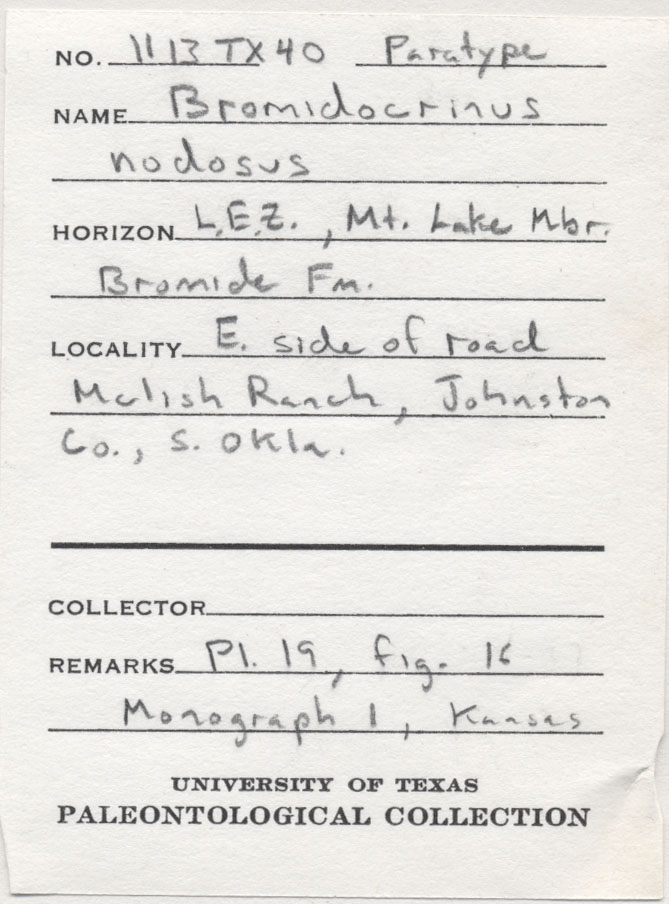 NO. 1113TX40 Paratype
NAME Bromidocrinus
nodosus
HORIZON L.E.Z., Mt. Lake Mbr.
Bromide Fm.
LOCALITY E. side of road
Mclish Ranch, Johnston
Co., S. Okla.
COLLECTOR
REMARKS Pl. 19, fig. 16
Monograph 1, Kansas
UNIVERSITY OF TEXAS
PALEONTOLOGICAL COLLECTION